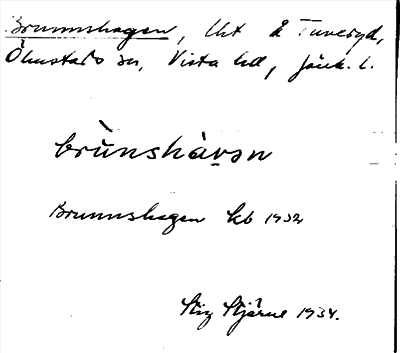 Brunnshagen, Lht å Tuveryd,
Ölmstads sn, Vista hd, Jönk. l.
brùnshàvən
Brunnshagen kb 1932
Stig Stjärne 1934.